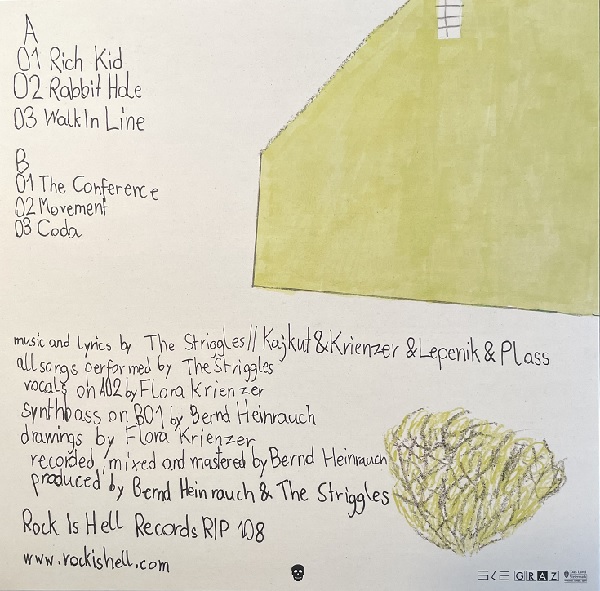 A
01 Rich Kid
02 Rabbit Hole
03 Walk In Line
B
01 The Conference
02 Movement
03 Coda
music and lyrics by The Striggles // Kajkut & Krienzer & Lepenik & Plass
all songs performed by The Striggles
vocals on A02 by Flora Krienzer
synthbass on B01 by Bernd Heinrauch
drawings by Flora Krienzer
recorded, mixed and mastered by Bernd Heinrauch
produced by Bernd Heinrauch & The Striggles
Rock Is Hell Records RIP 108
www.rockishell.com
GRAZ